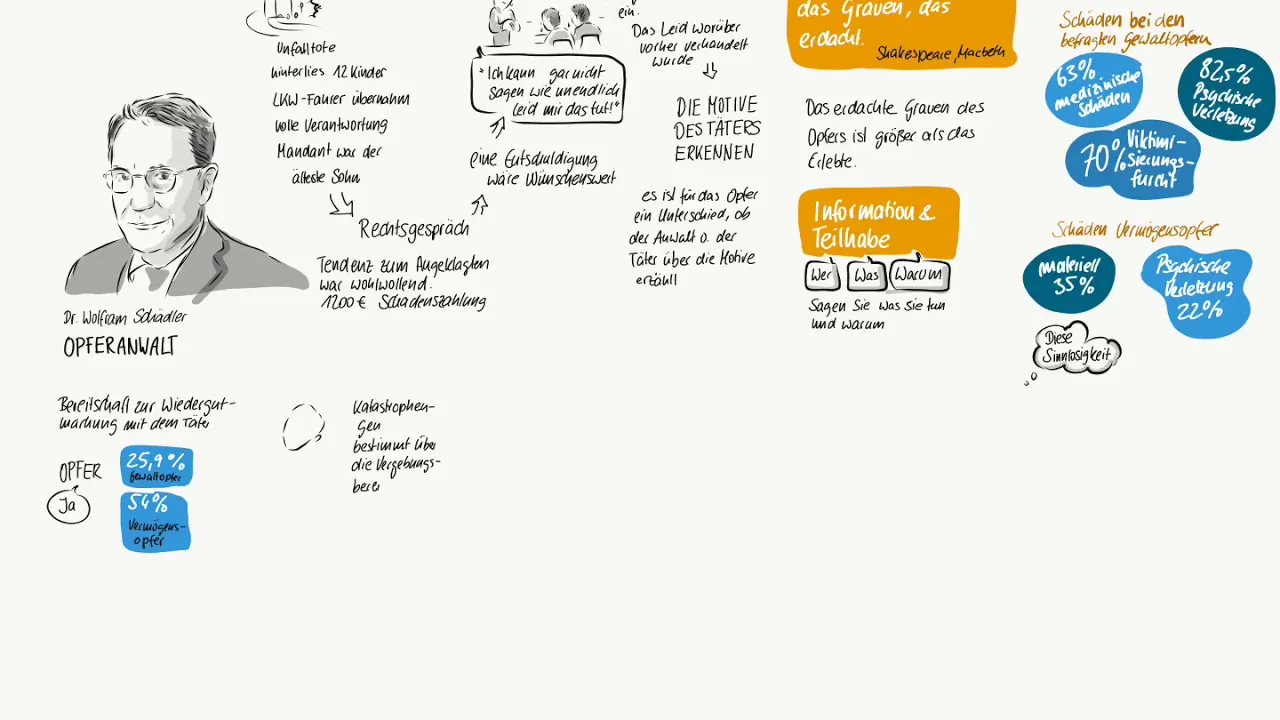 Unfalltote
hinterlies 12 Kinder
LKW-Fahrer übernahm
volle Verantwortung
Mandant war der
älteste Sohn
Rechtsgespräch
Tendenz zum Angeklagten
war wohlwollend.
1200 € Schadenszahlung
Dr. Wolfram Schädler
OPFERANWALT
"Ich kann gar nicht
sagen wie unendlich
leid mir das tut!"
eine Entschuldigung
wäre Wünschenswert
ein.
Das Leid worüber
vorher verhandelt
wurde
DIE MOTIVE
DES TÄTERS
ERKENNEN
es ist für das Opfer
ein Unterschied, ob
der Anwalt o. der
Täter über die Motive
erzähll
das Grauen, das
erdacht.
Shakespeare, Macbeth
Das erdachte Grauen des
Opfers ist größer als das
Erlebte.
Information &
Teilhabe
Wer Was Warum
Sagen Sie was Sie tun
und warum
Schäden bei den
befragten Gewaltopfern
63%
medizinische
Schäden
82,5%
Psychische
Verletzung
70% Viktimi-
sierungs-
furcht
Schäden Vermögensopfer
materiell
35%
Psychische
Verletzung
22%
Diese
Sinnlosigkeit
Bereitschaft zur Wiedergut-
machung mit dem Täter
OPFER
Ja
25,9%
Gewaltopfer
54%
Vermögens-
opfer
Katastrophen-
gen
bestimmt über
die Vergebungs-
berei